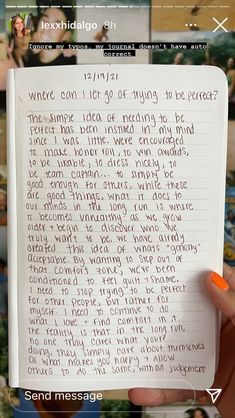 lexxhidalgo 8h
Ignore my typos, my journal doesn't have auto
correct
12/19/21
where can I let go of trying to be perfect?
The simple idea of needing to be
perfect has been instilled in my mind
since I was little. we're encouraged
to make honor roll, to win awards,
to be likable, to dress nicely, to
be team captain... to simply be
good enough for others. while these
are good things, what it does to
our minds in the long run is where
it becomes unhealthy. as we grow
older + begin to discover who we
truly want to be, we have already
created this idea of what's "socially"
acceptable. By wanting to step out of
that comfort zone, we've been
conditioned to feel guilt + shame.
I need to stop trying to be perfect
for other people, but rather for
myself. I need to continue to do
what I love + find comfort in it.
The reality is that in the long run,
no one truly cares what your
doing, they simply care about themselves
Do what makes you happy + allow
others to do the same, without judgement
Send message